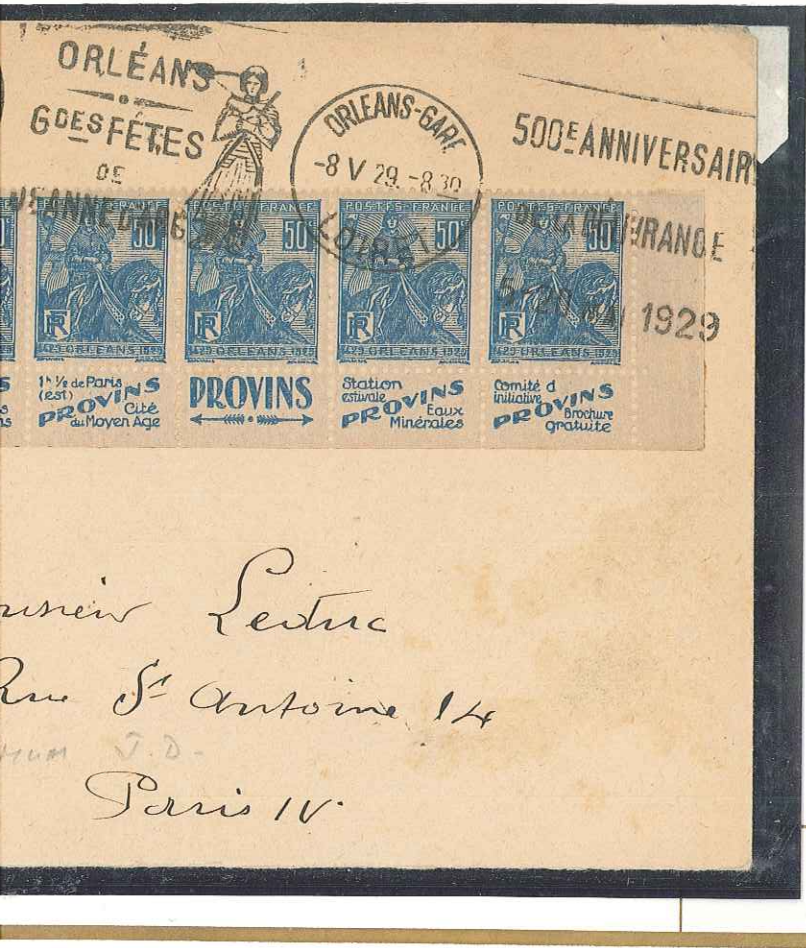 ORLÉANS
GDES FÊTES
DE
JEANNE D'ARC
ORLEANS-GARE
-8 V 29.-8 30
LOIRET
500E ANNIVERSAIR
DE LA DÉLIVRANCE
5-20 MAI 1929
POSTES-FRANCE POSTES-FRANCE POSTES-FRANCE POSTES-FRANCE
50c 50c 50c 50c
RF RF RF RF
1429 ORLEANS 1929 1429 ORLEANS 1929 1429 ORLEANS 1929 1429 ORLEANS 1929
1h ½ de Paris
(est)
PROVINS
Cité
du Moyen Age
PROVINS
Station
estivale
PROVINS
Eaux
Minérales
Comité d
initiative
PROVINS
Brochure
gratuite
Leduc
Rue St Antoine 14
J.D.-
Paris IV.